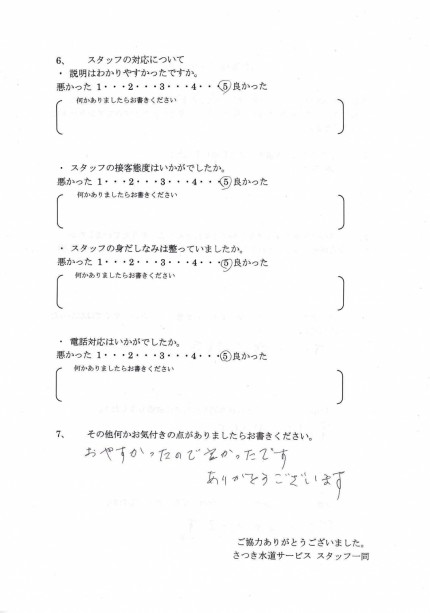 6、 スタッフの対応について
・ 説明はわかりやすかったですか。
悪かった 1・・・2・・・3・・・4・・・⑤良かった
何かありましたらお書きください
・ スタッフの接客態度はいかがでしたか。
悪かった 1・・・2・・・3・・・4・・・⑤良かった
何かありましたらお書きください
・ スタッフの身だしなみは整っていましたか。
悪かった 1・・・2・・・3・・・4・・・⑤良かった
何かありましたらお書きください
・ 電話対応はいかがでしたか。
悪かった 1・・・2・・・3・・・4・・・⑤良かった
何かありましたらお書きください
7、 その他何かお気付きの点がありましたらお書きください。
おやすかったので良かったです
ありがとうございます
ご協力ありがとうございました。
さつき水道サービス スタッフ一同